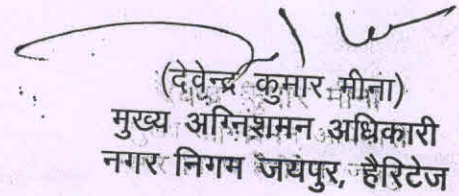 (देवेन्द्र कुमार मीना)
मुख्य अग्निशमन अधिकारी
नगर निगम जयपुर, हैरिटेज